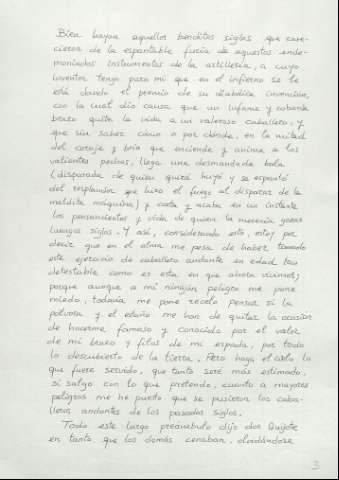 Bien hayan aquellos benditos siglos que care-
cieron de la espantable furia de aquestos ende-
moniados instrumentos de la artillería, a cuyo
inventor tengo para mí que en el infierno se le
está dando el premio de su diabólica invención,
con la cual dio causa que un infame y cobarde
brazo quite la vida a un valeroso caballero, y
que sin saber cómo o por dónde, en la mitad
del coraje y brío que enciende y anima a los
valientes pechos, llega una desmandada bala
(disparada de quien quizá huyó y se espantó
del resplandor que hizo el fuego al disparar de la
maldita máquina) y corta y acaba en un instante
los pensamientos y vida de quien la merecía gozar
luengos siglos. Y así, considerando esto, estoy por
decir que en el alma me pesa de haber tomado
este ejercicio de caballero andante en edad tan
detestable como es esta en que ahora vivimos;
porque aunque a mí ningún peligro me pone
miedo, todavía me pone recelo pensar si la
pólvora y el estaño me han de quitar la ocasión
de hacerme famoso y conocido por el valor
de mi brazo y filos de mi espada, por todo
lo descubierto de la tierra. Pero haga el cielo lo
que fuere servido, que tanto seré más estimado,
si salgo con lo que pretendo, cuanto a mayores
peligros me he puesto que se pusieron los caba-
lleros andantes de los pasados siglos.
Todo este largo preámbulo dijo don Quijote
en tanto que los demás cenaban, olvidándose
3